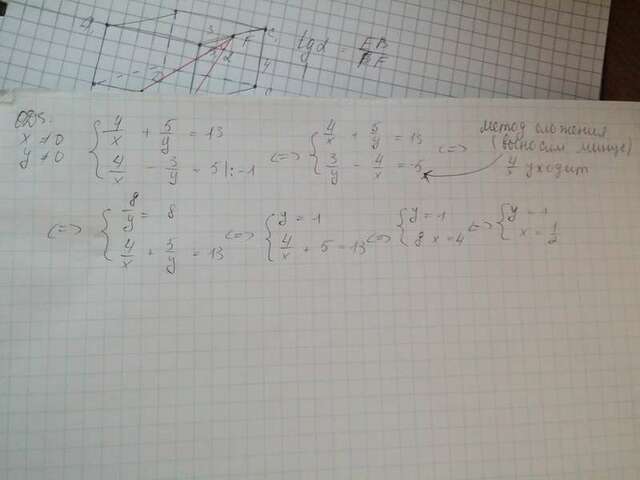 tgα = EB/BF
ОДЗ:
x ≠ 0
y ≠ 0
{ 4/x + 5/y = 13
4/x - 3/y = 5 |: -1
<=> { 4/x + 5/y = 13
3/y - 4/x = -5
<=> метод сложения
(выносим минус)
4/x уходит
<=> { 8/y = 8
4/x + 5/y = 13
<=> { y = 1
4/x + 5 = 13
<=> { y = 1
8x = 4
<=> { y = 1
x = 1/2